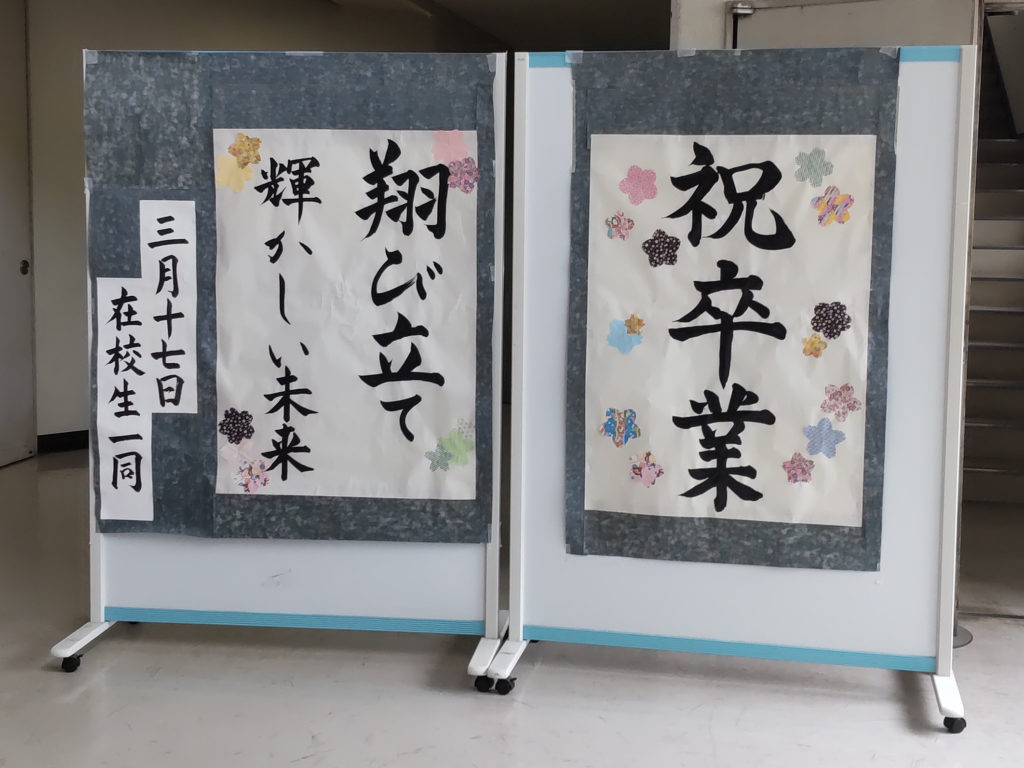 祝卒業
翔び立て
輝かしい未来
三月十七日
在校生一同